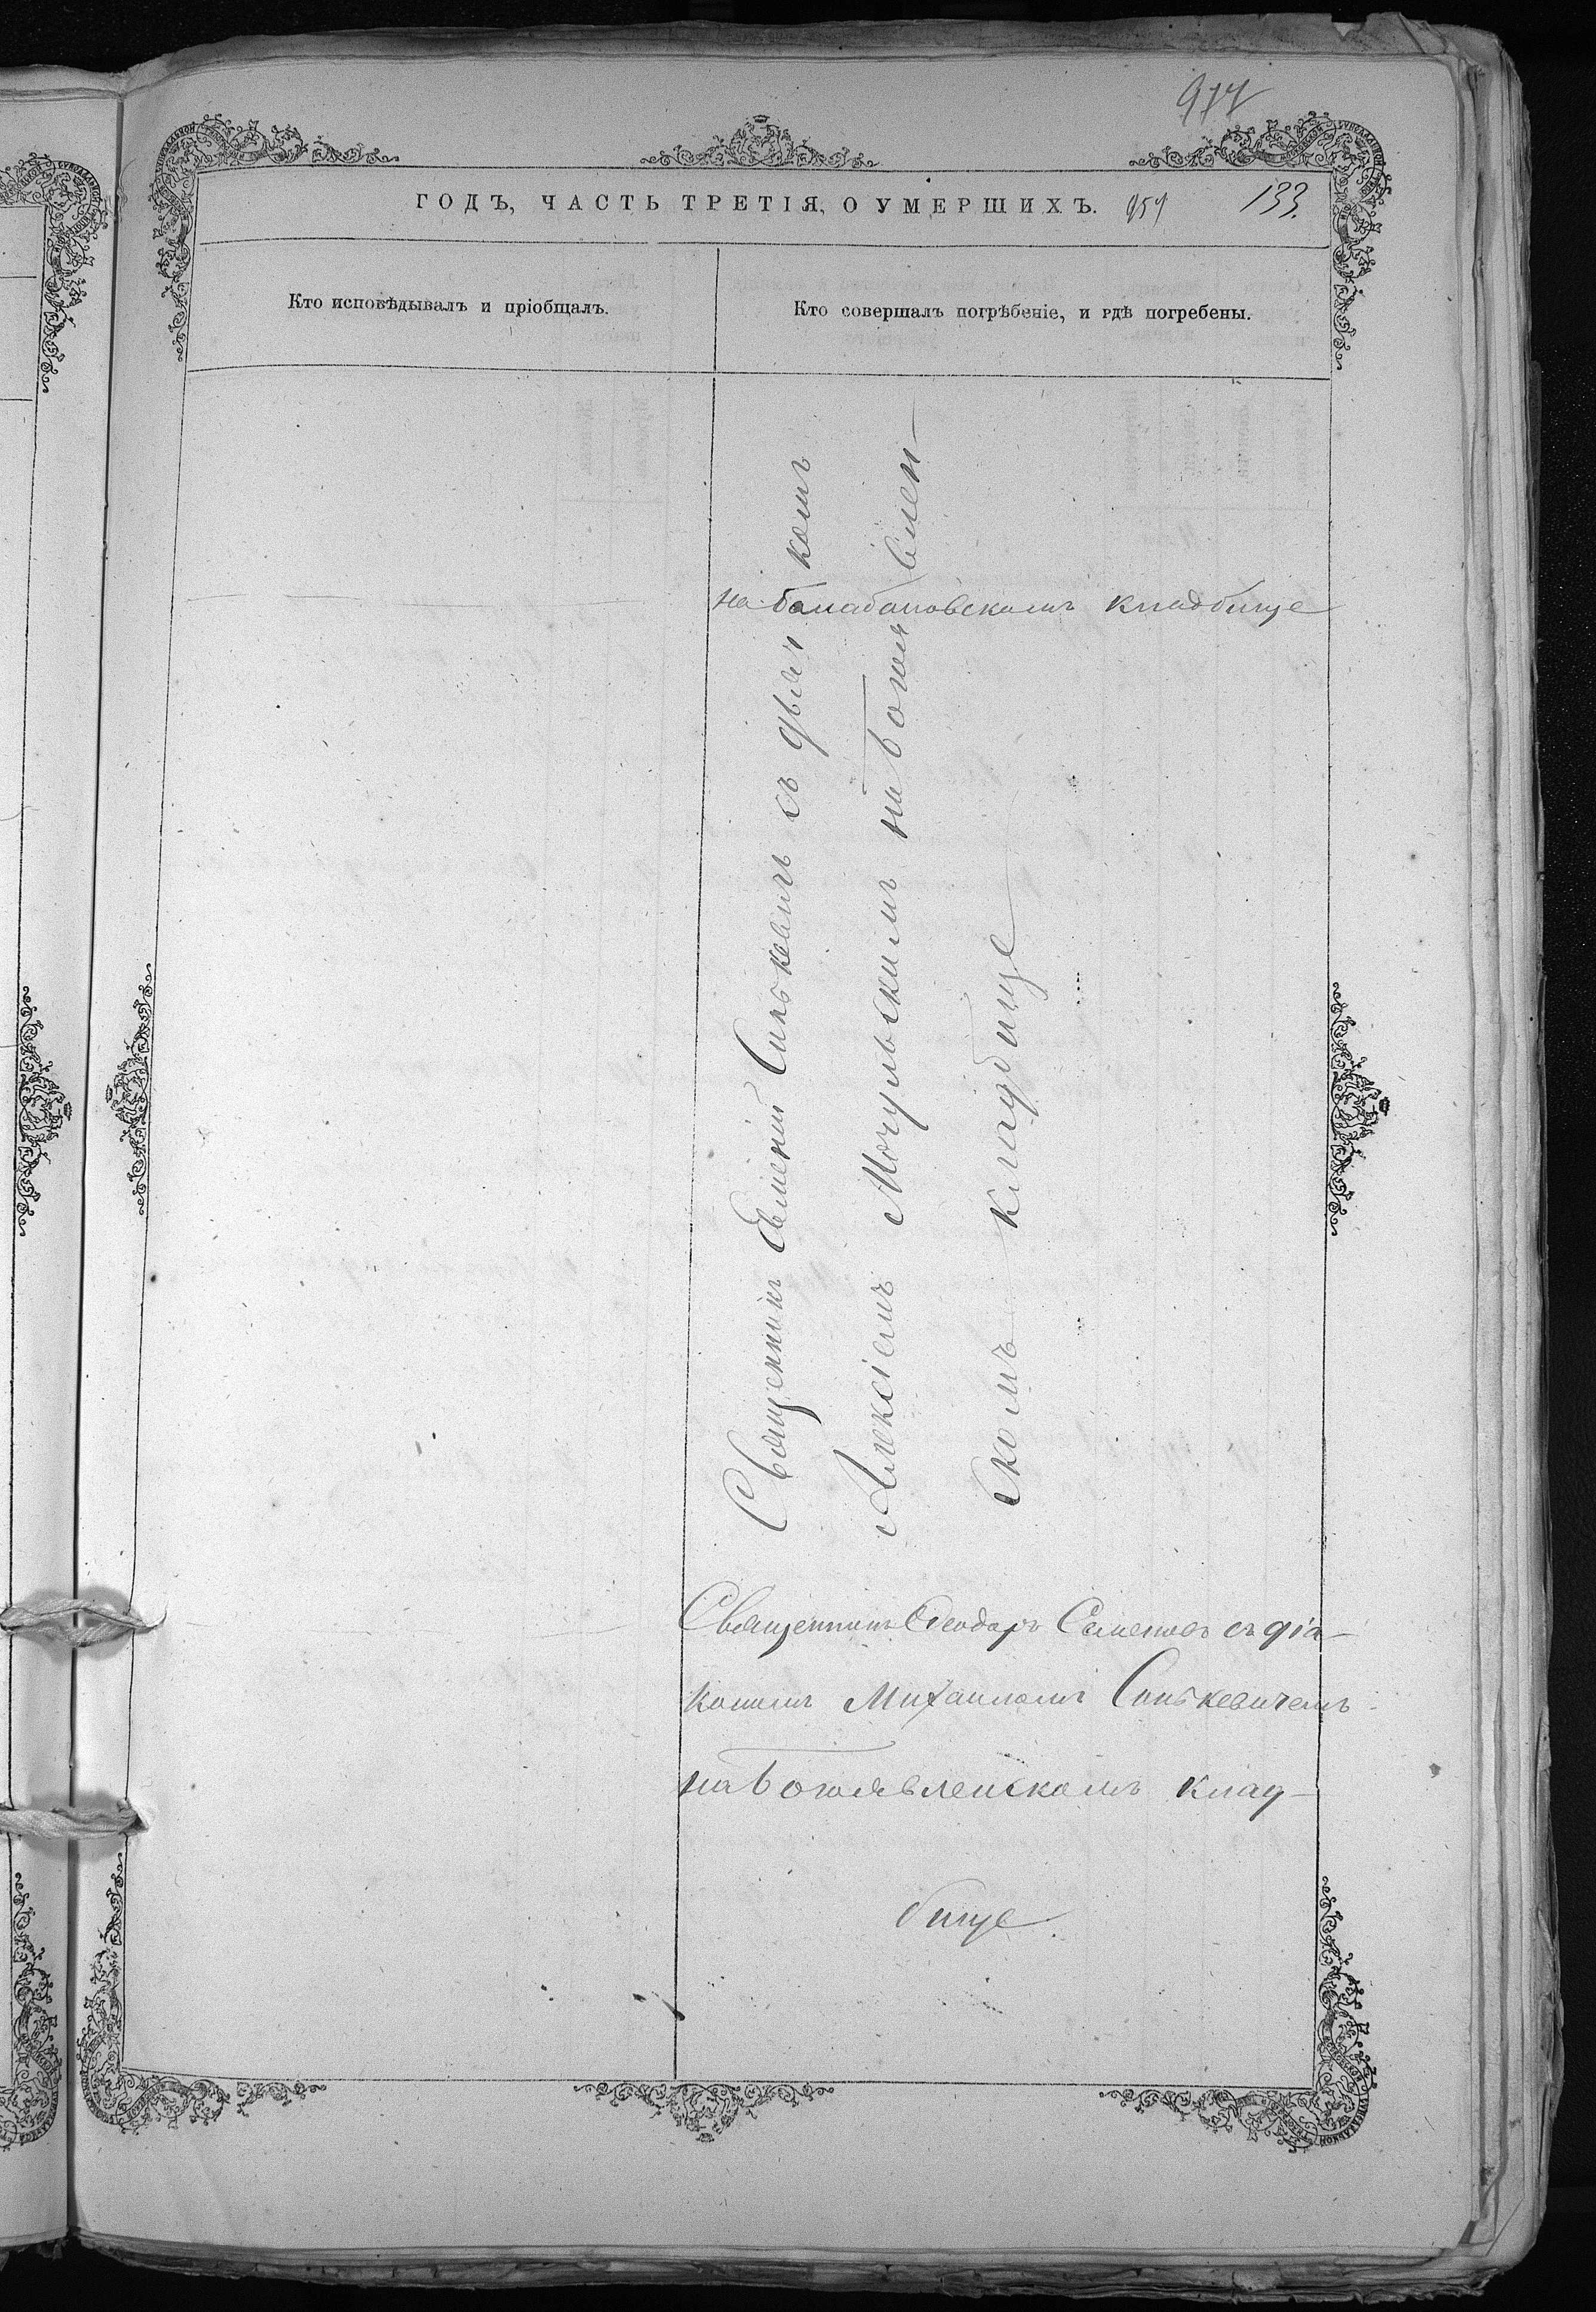 977
ГОДЪ, ЧАСТЬ ТРЕТІЯ, О УМЕРШИХЪ. 957 133.
Кто исповѣдывалъ и пріобщалъ.
Кто совершалъ погрѣбеніе, и гдѣ погребены.
на Балабановскомъ кладбище
Священникъ Евменій Синькевичъ съ дьяч комъ
Алексіемъ Мочульскимъ на Богоявлен-
скомъ кладбище
Священникъ Ѳеодоръ Семеновъ съ діа-
кономъ Михаиломъ Синькевичемъ
на Богоявленскомъ клад-
бище